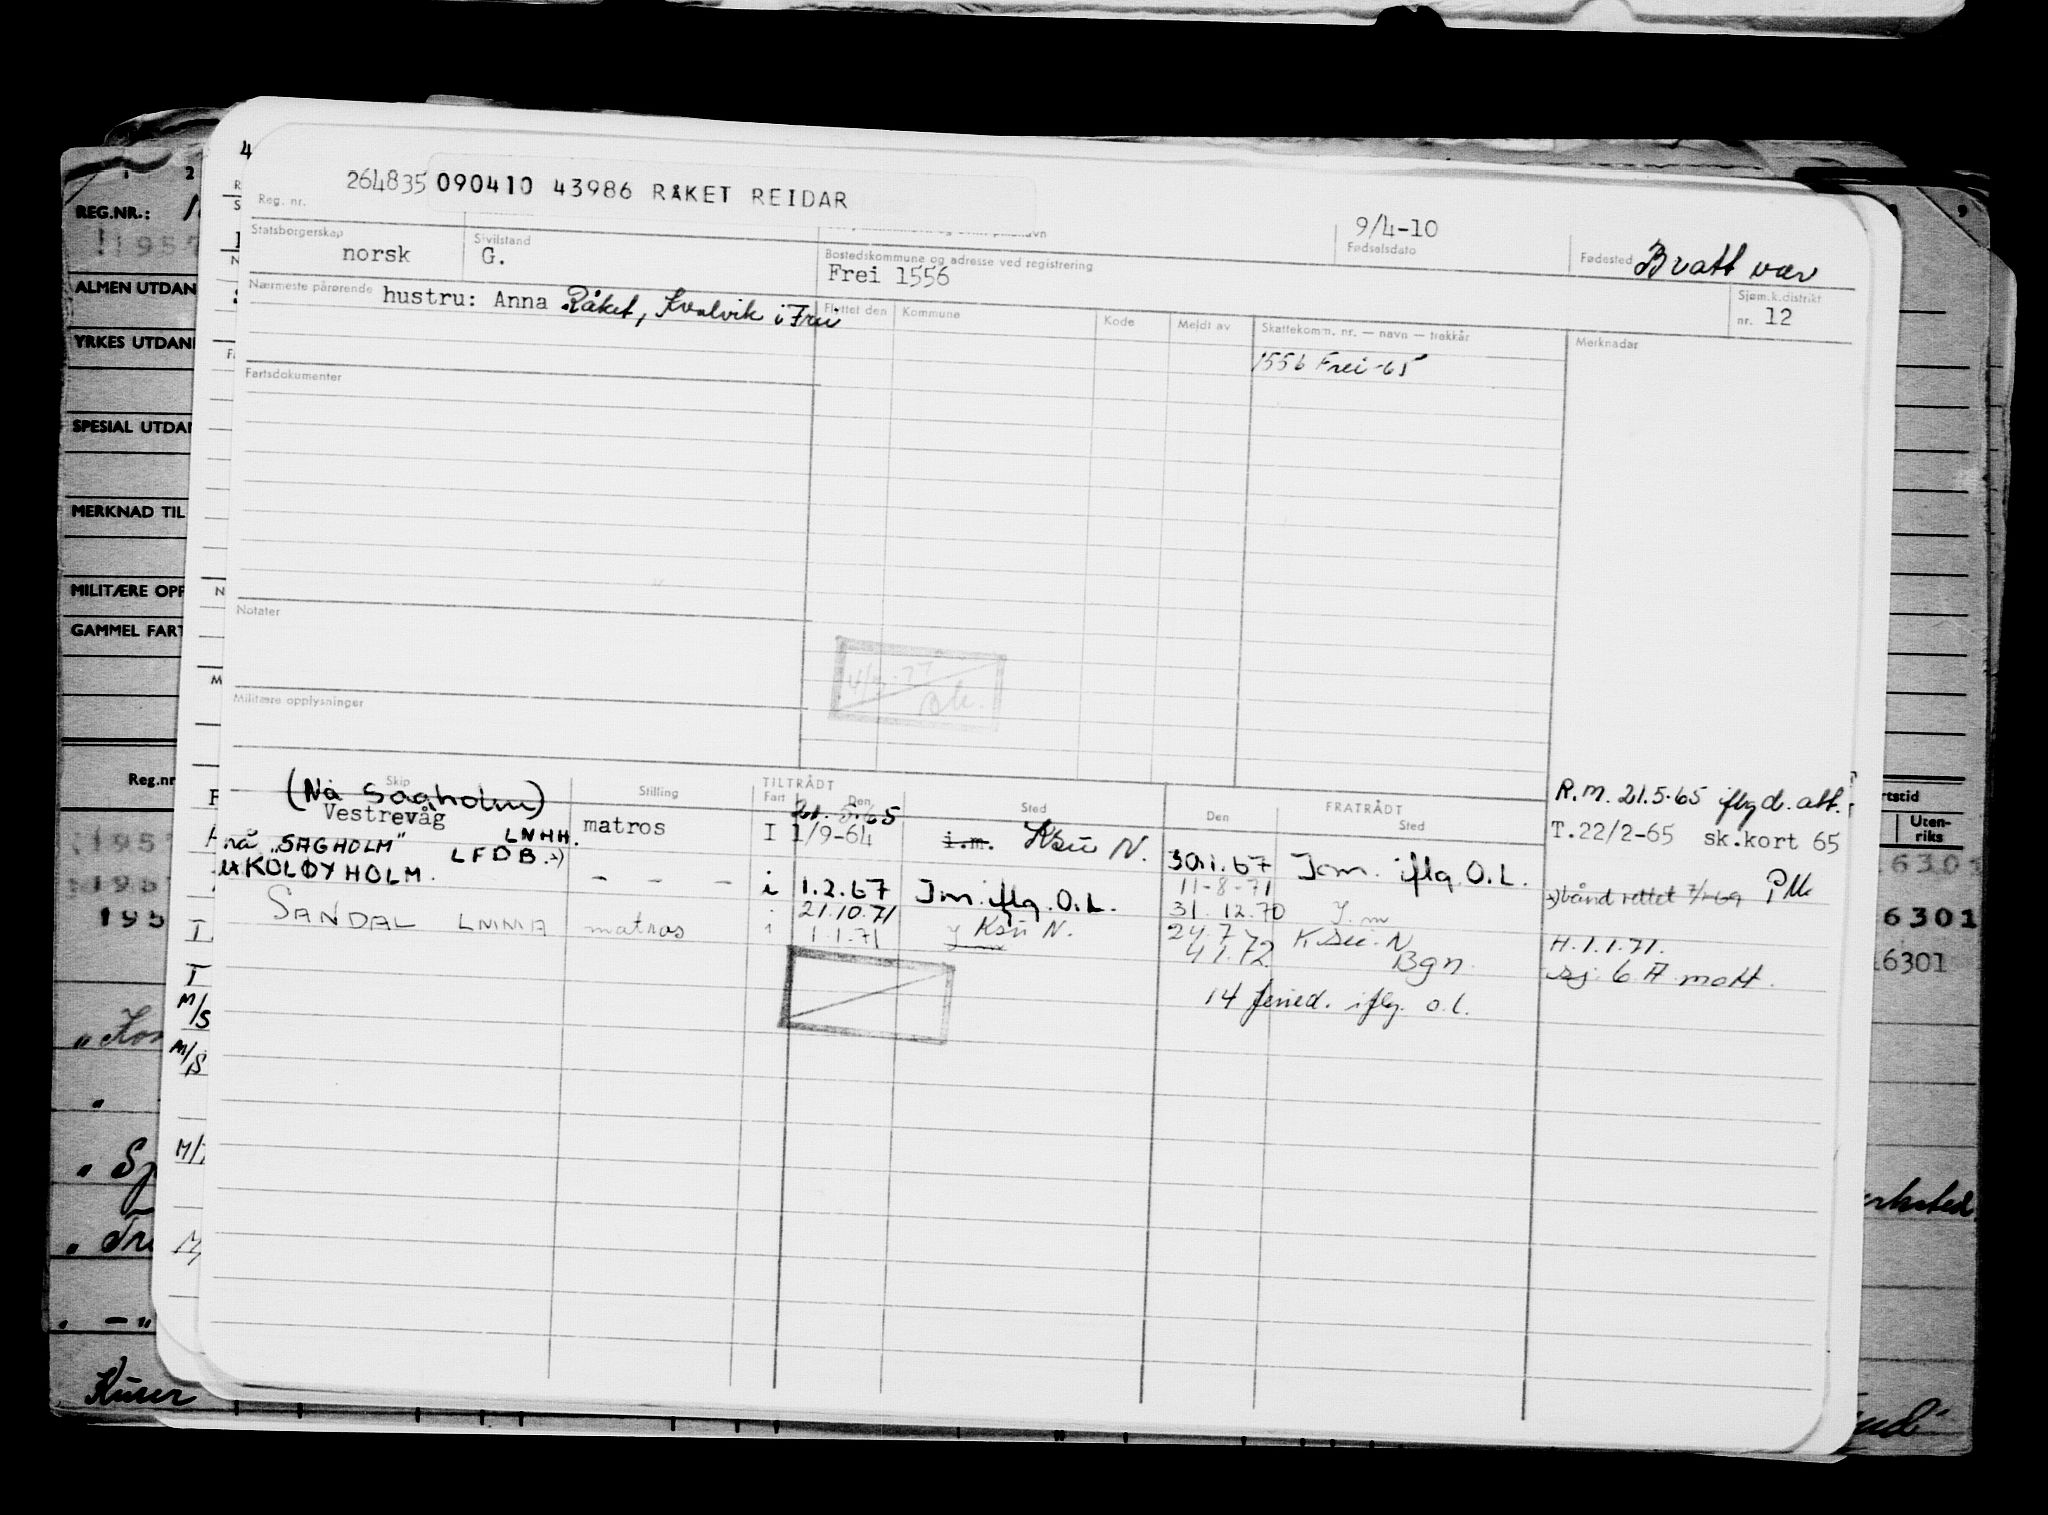 264835 090410 43986 RÅKET REIDAR
Reg. nr.
9/4-10
Fødselsdato
Fødested Brattvær
Statsborgerskap
norsk
Sivilstand
G.
Bostedskommune og adresse ved registrering
Frei 1556
Sjøm.k.distrikt
nr. 12
Nærmeste pårørende hustru: Anna Råket, Kvalvik i Frei
Flyttet den Kommune Kode Meldt av Skattekomm. nr. — navn — trekkår Merknader
1556 Frei -65
Fartsdokumenter
Notater
Militære opplysninger
Skip Stilling TILTRÅDT Fart Den Sted FRATRÅDT Den Sted
(Nå Sagholm)
Vestrevåg LNHH. matros I 21.5.65 1/9-64 i.m. Ksu N.
R.M. 21.5.65 iflg d. att.
T.22/2-65 sk.kort 65
nå "SAGHOLM" LFDB. x) 30.1.67 Im. iflg. O.L.
KOLØYHOLM. – – – i 1.2.67 Im. iflg. O.L. 11-8-71
31.12.70 I.m
x) bånd rettet
SANDAL LMMA matros i 21.10.71 1.1.71 Ksu N. 24.7 Ksu. N
4 1.72 Bgn.
H.1.1.71.
sj. 6 A mott.
14 feried. iflg. o.l.
REG.NR.:
ALMEN UTDAN
YRKES UTDAN
SPESIAL UTDAN
MERKNAD TIL
MILITÆRE OPP
GAMMEL FART
Reg.nr
Uten-
riks
6301
6301
16301
M/S
M/S
Kuser